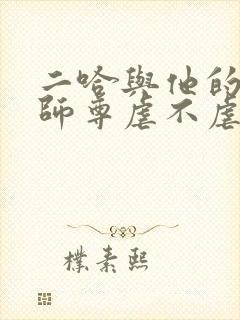 二哈與他的
師尊虐不虐
樸素熙